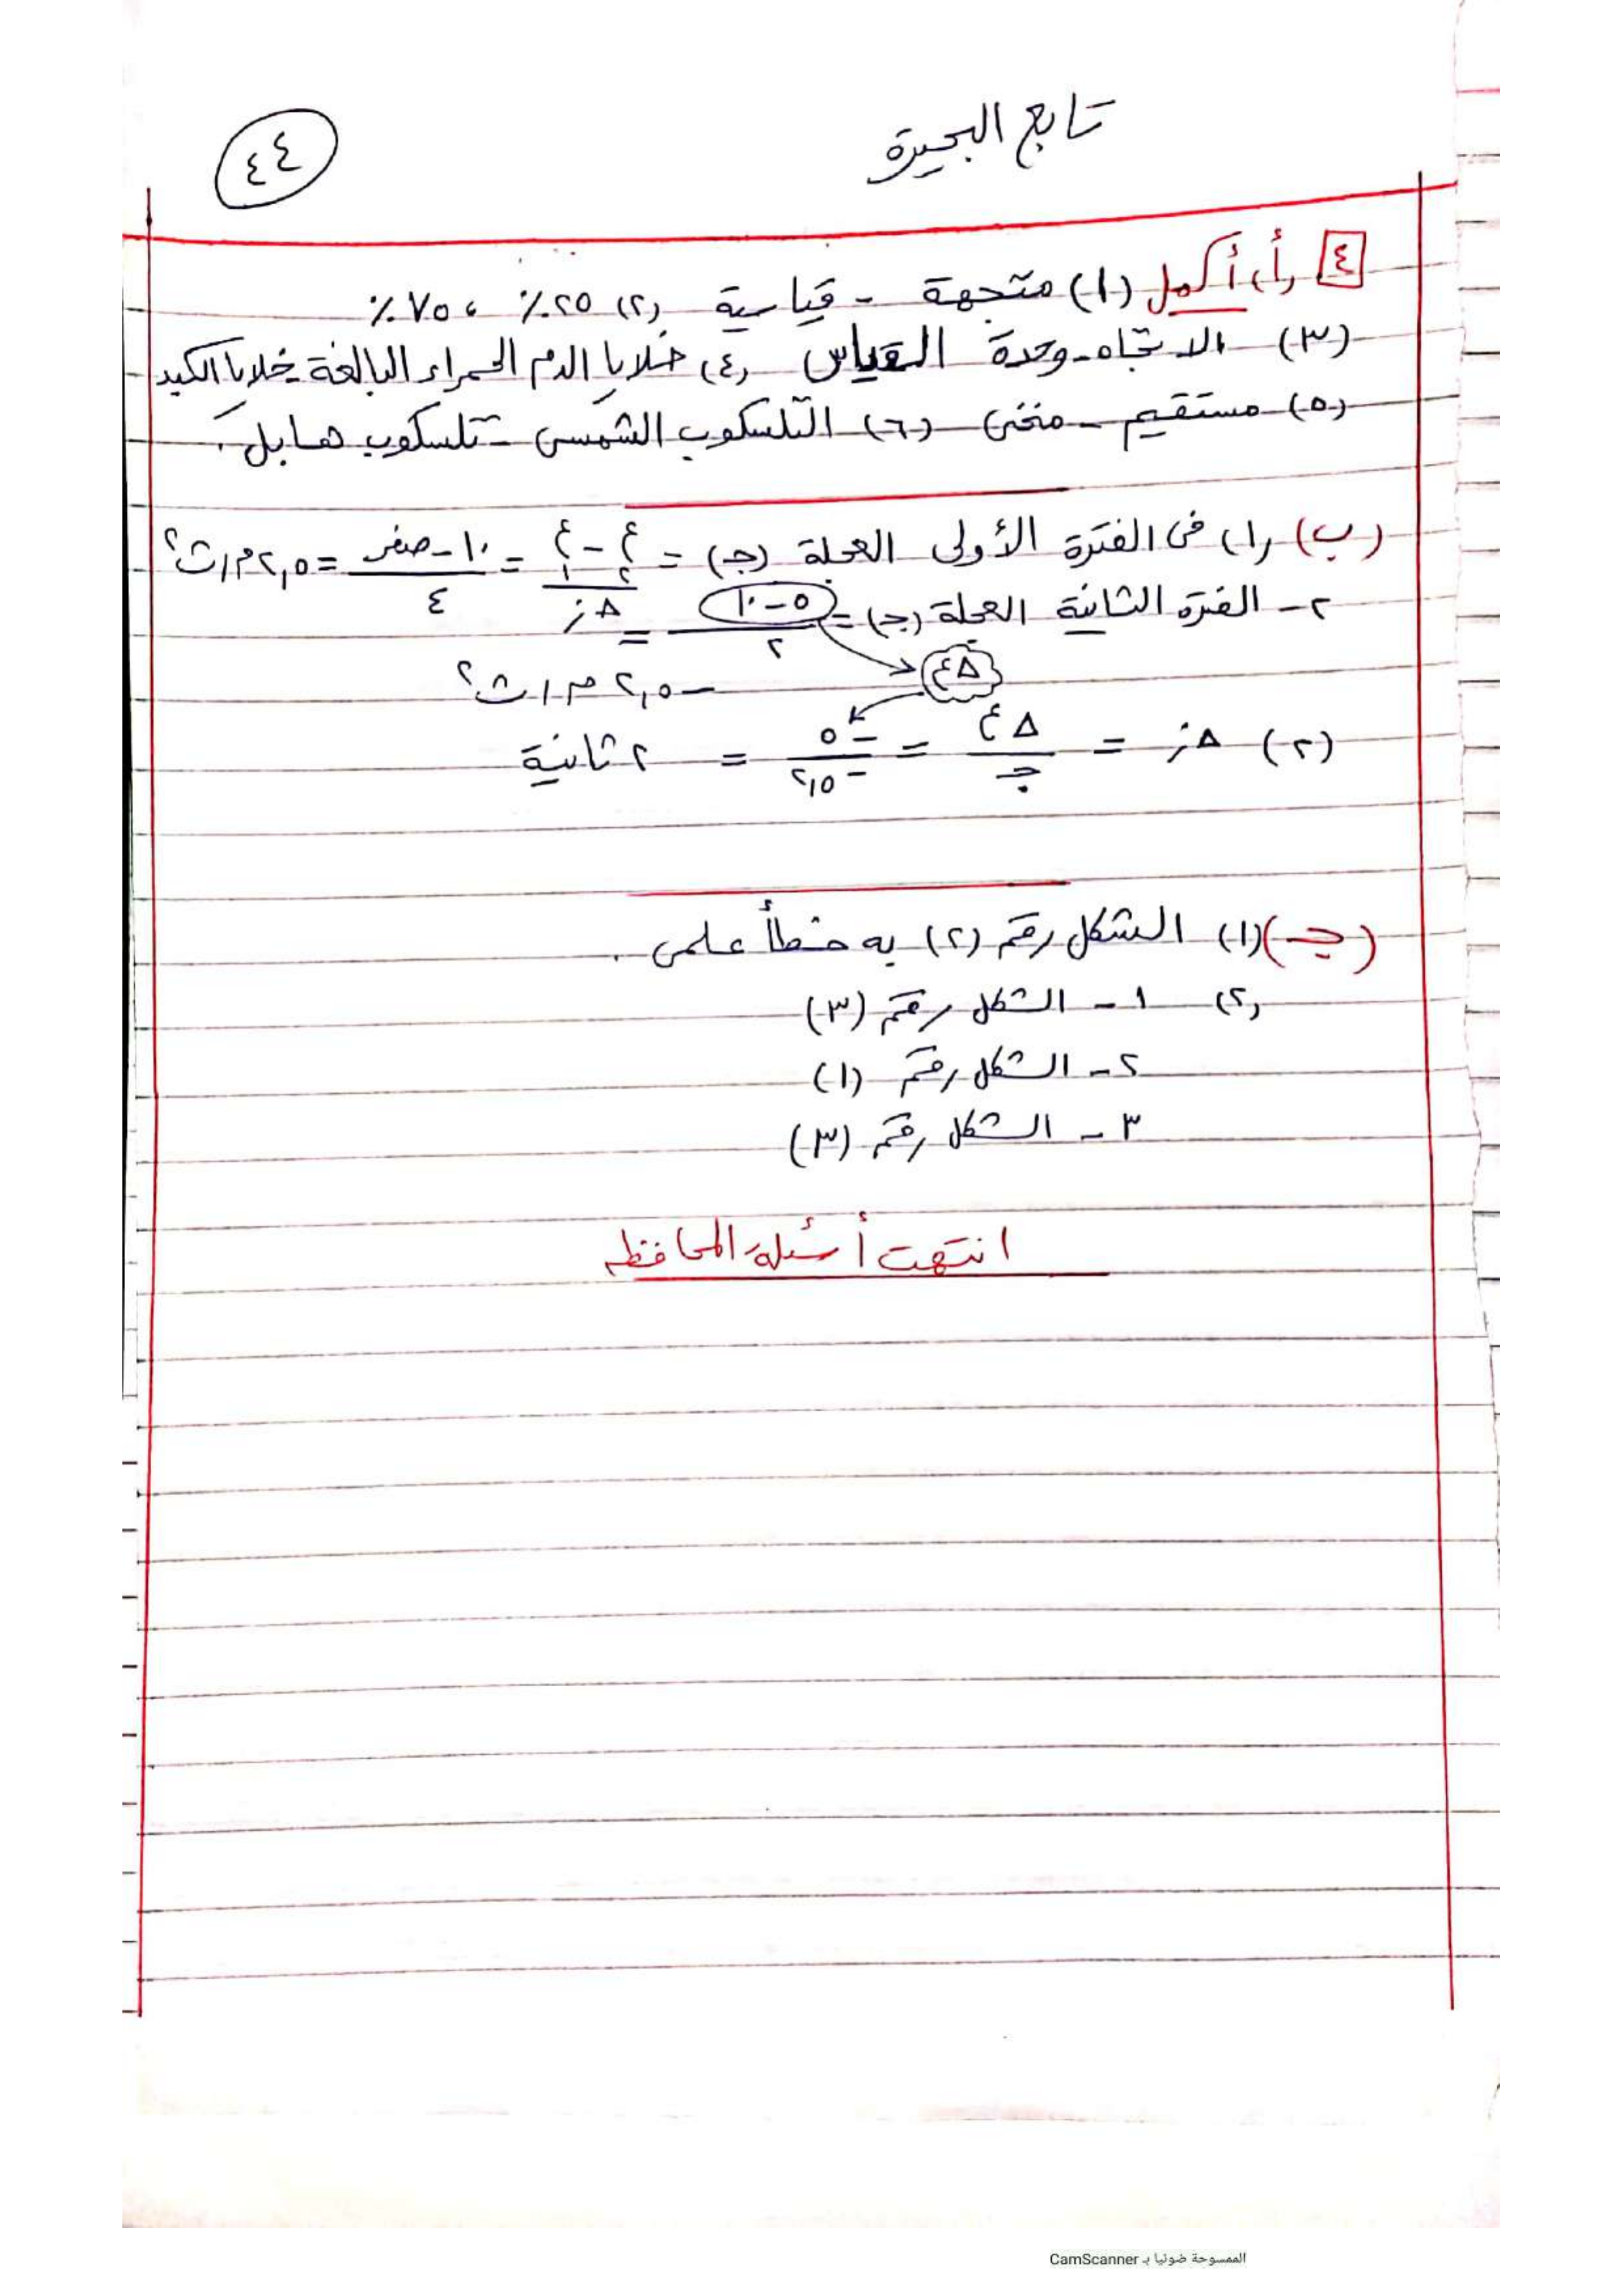 تابع البحيرة
٤٤
٤ (أ) أكمل (١) متجهة - قياسية (٢) ٢٥٪ ، ٧٥٪
(٣) الاتجاه - وحدة القياس (٤) خلايا الدم الحمراء البالغة - خلايا الكبد
(٥) مستقيم - منحنى (٦) التلسكوب الشمسى - تلسكوب هابل .
(ب) (١) ١ فى الفترة الأولى العجلة (جـ) = ع٢ - ع١ / Δز = ١٠ - صفر / ٤ = ٢,٥ م/ث٢
٢ - الفترة الثانية العجلة (جـ) = ٥ - ١٠ / ٢ =
Δع
- ٢,٥ م/ث٢
(٢) Δز = Δع / جـ = - ٥ / - ٢,٥ = ٢ ثانية
(جـ) (١) الشكل رقم (٢) به خطأ علمى .
(٢) ١ - الشكل رقم (٣)
٢ - الشكل رقم (١)
٣ - الشكل رقم (٣)
انتهت أسئلة المحافظه
الممسوحة ضوئيا بـ CamScanner